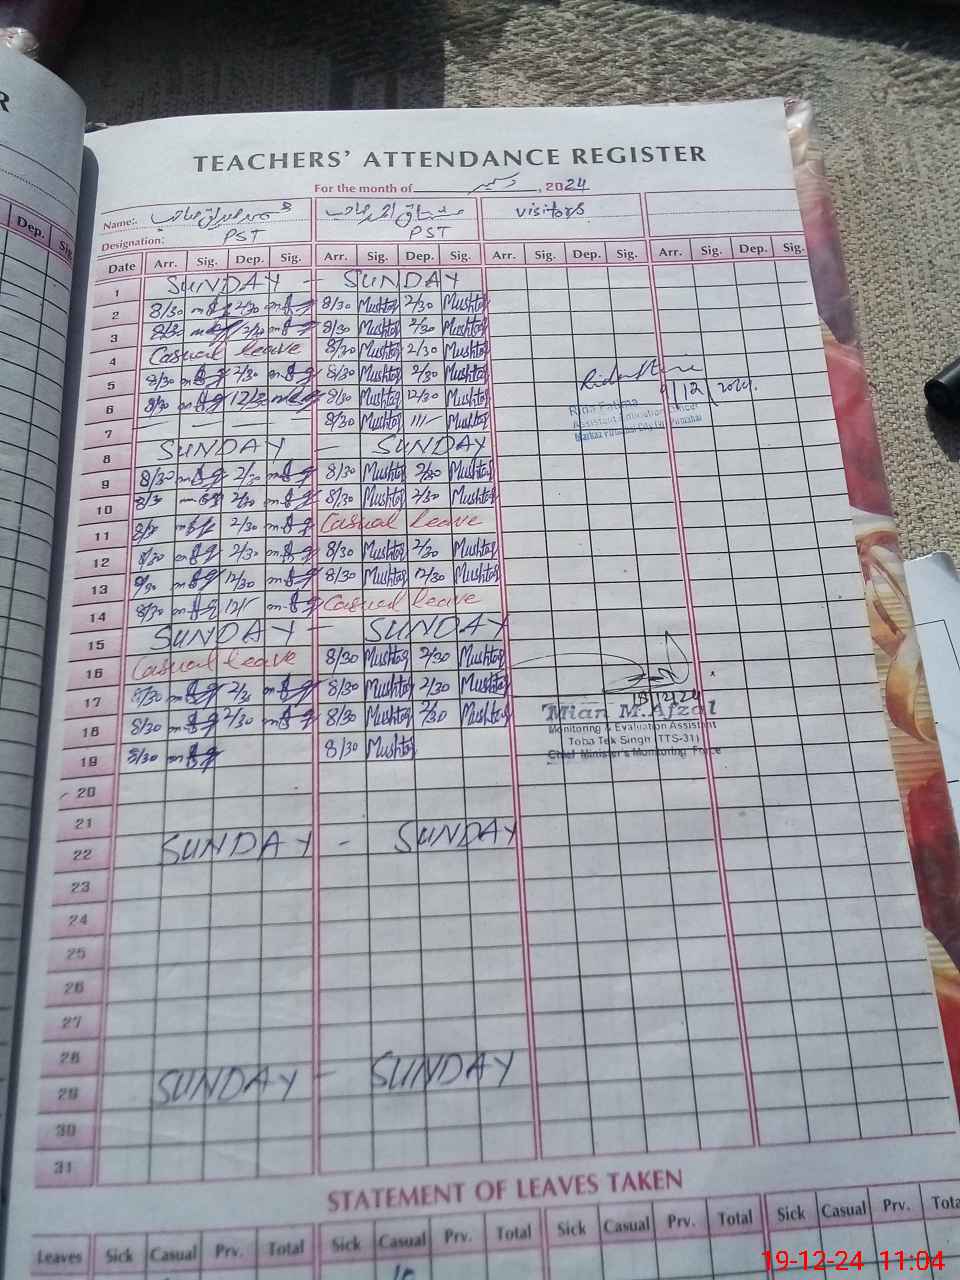 R
TEACHERS' ATTENDANCE REGISTER
For the month of دسمبر, 2024
Name: صاحب مشتاق احمد صاحب visitors
Designation: PST PST
Dep. Sig.
Date Arr. Sig. Dep. Sig. Arr. Sig. Dep. Sig. Arr. Sig. Dep. Sig. Arr. Sig. Dep. Sig.
1 SUNDAY - SUNDAY
2 8/30 2/30 8/30 Mushtaq 2/30 Mushtaq
3 8/30 2/30 8/30 Mushtaq 2/30 Mushtaq
4 Casual leave 8/30 Mushtaq 2/30 Mushtaq
5 8/30 2/30 8/30 Mushtaq 2/30 Mushtaq
6 8/30 12/30 8/30 Mushtaq 12/30 Mushtaq
7 8/30 Mushtaq Mushtaq
8 SUNDAY - SUNDAY
9 8/30 2/30 8/30 Mushtaq 2/30 Mushtaq
10 8/30 2/30 8/30 Mushtaq 2/30 Mushtaq
11 8/30 2/30 Casual leave
12 8/30 2/30 8/30 Mushtaq 2/30 Mushtaq
13 8/30 12/30 8/30 Mushtaq 12/30 Mushtaq
14 8/30 Casual leave
15 SUNDAY - SUNDAY
16 Casual leave 8/30 Mushtaq 2/30 Mushtaq
17 8/30 2/30 8/30 Mushtaq 2/30 Mushtaq
18 8/30 2/30 8/30 Mushtaq 2/30 Mushtaq
19 8/30 8/30 Mushtaq
20
21
22 SUNDAY - SUNDAY
23
24
25
26
27
28
29 SUNDAY - SUNDAY
30
31
12 2024
Rida Fatima
Assistant Education Officer
18/12/24
Mian M. Afzal
Monitoring & Evaluation Assistant
Toba Tek Singh (TTS-31)
Chief Minister's Monitoring Force
STATEMENT OF LEAVES TAKEN
Leaves Sick Casual Prv. Total Sick Casual Prv. Total Sick Casual Prv. Total Sick Casual Prv. Total
10
19-12-24 11:04